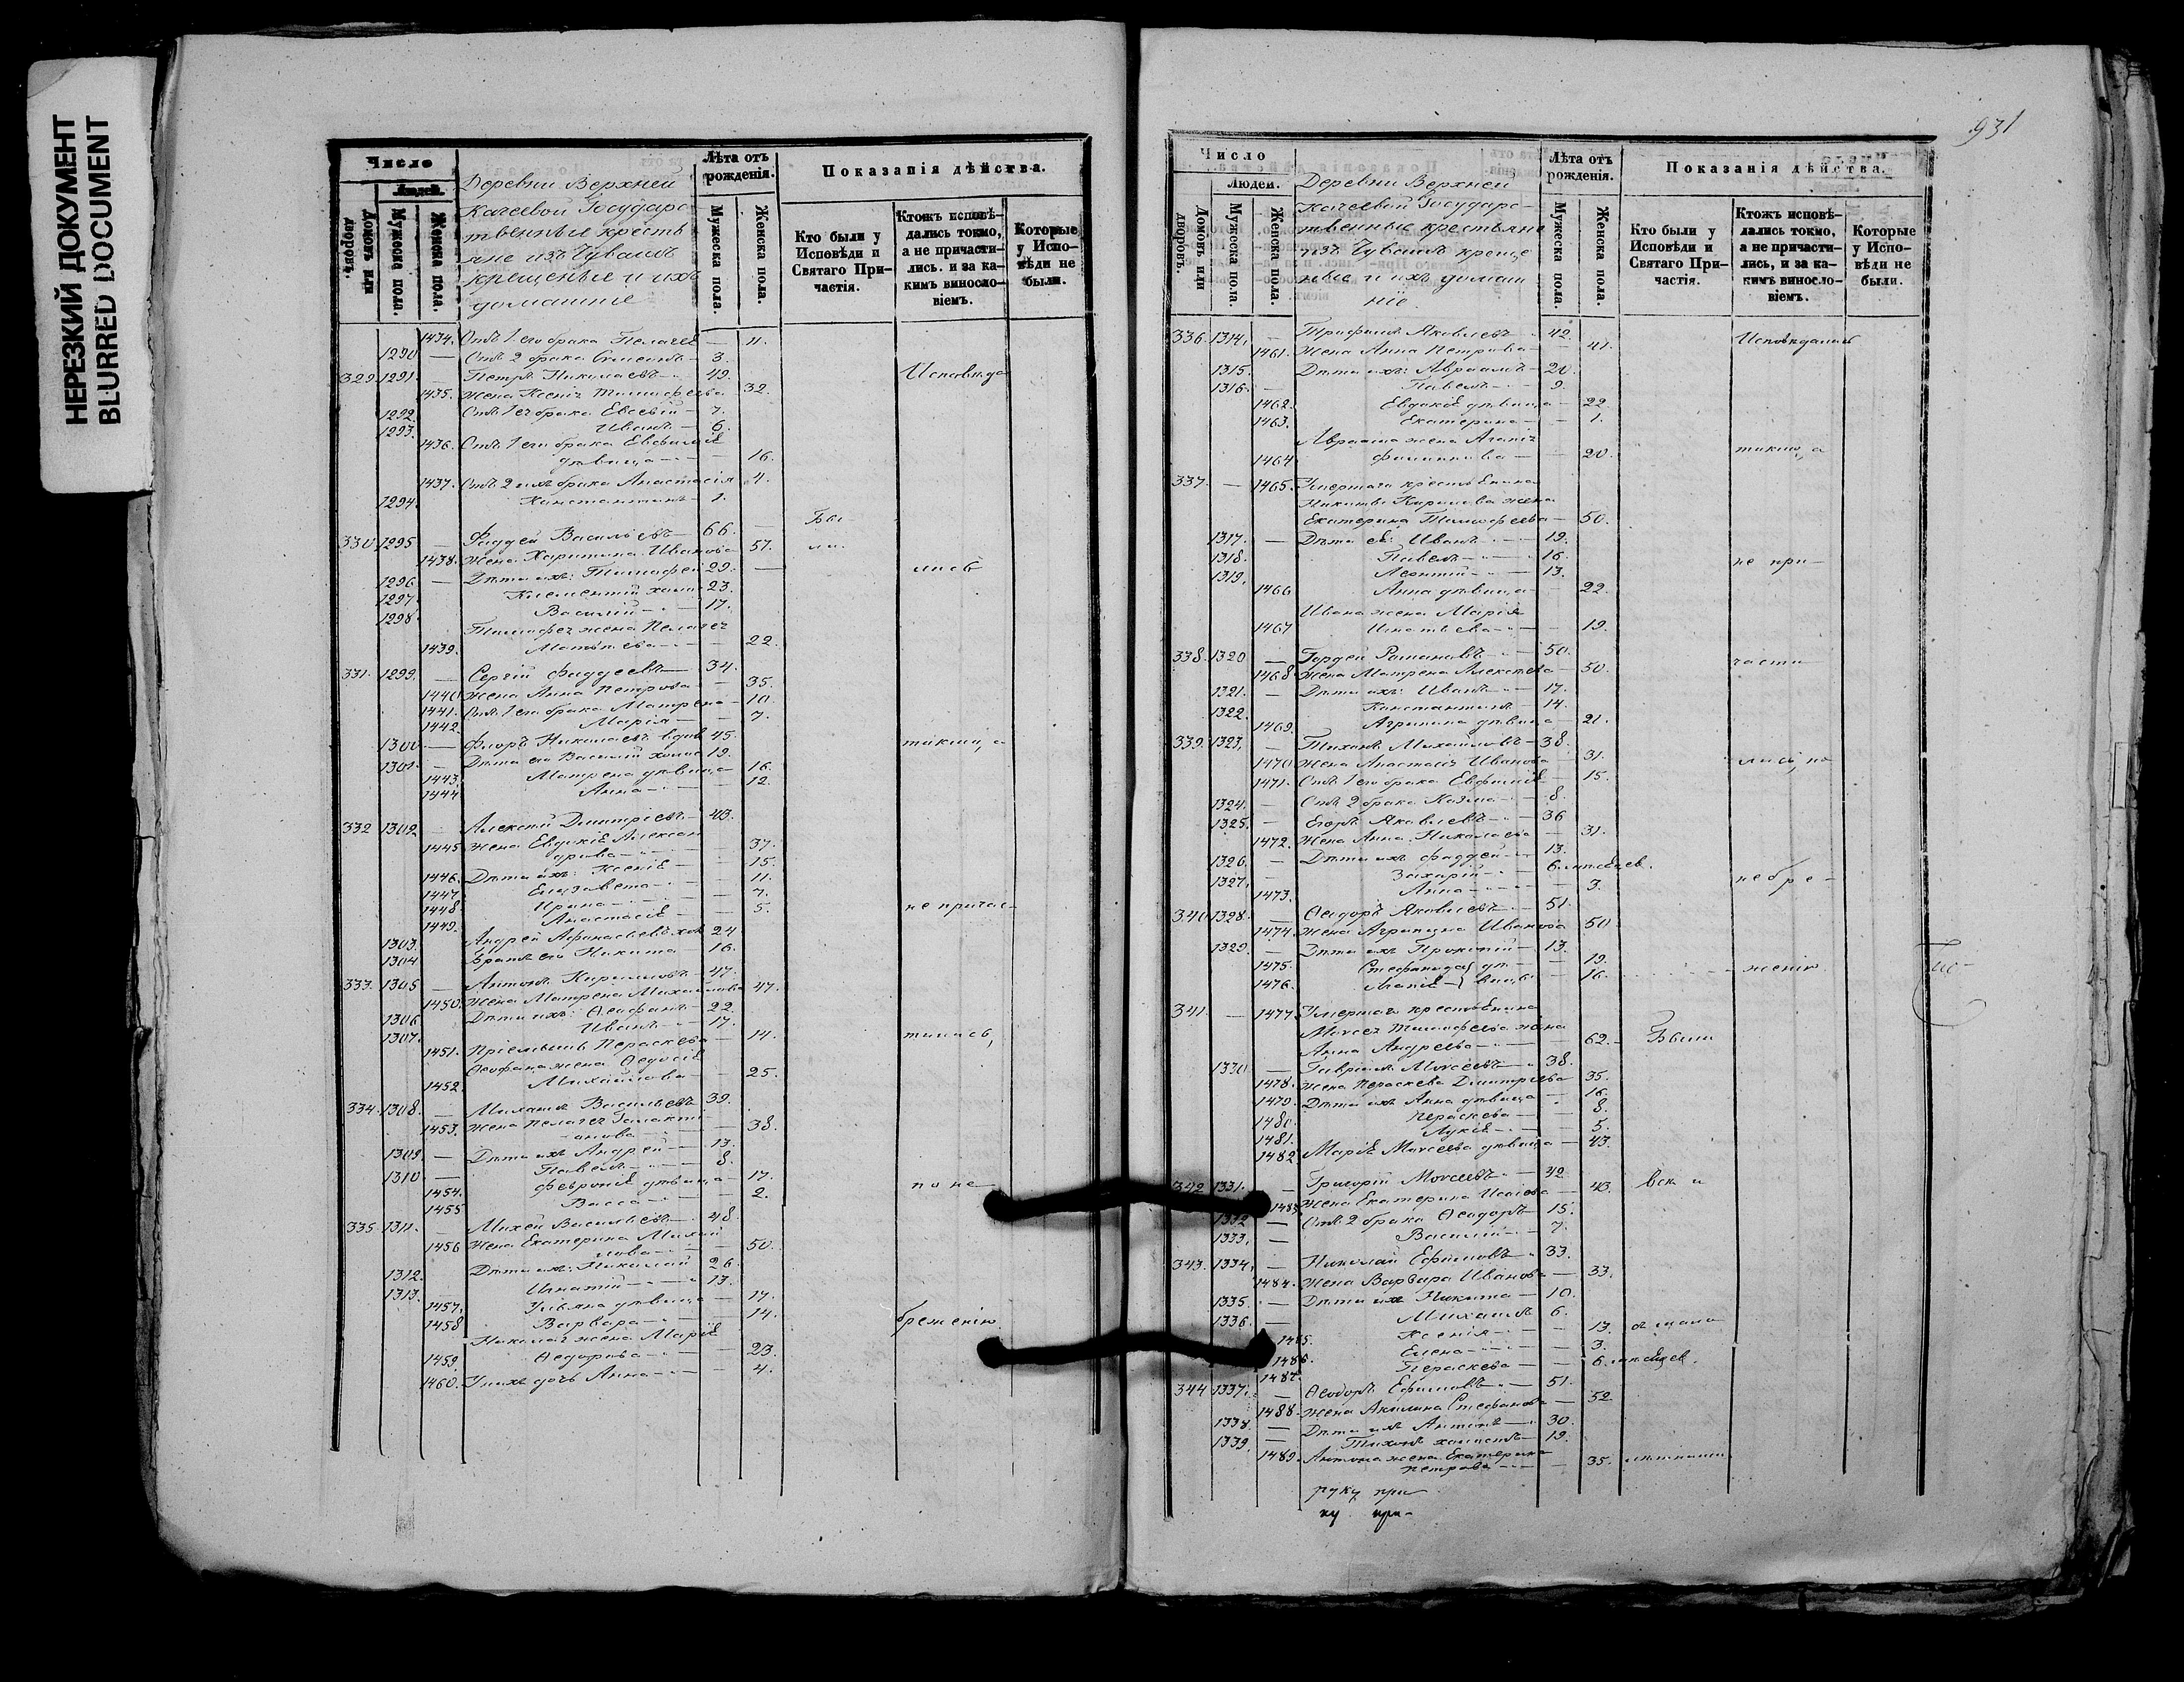 НЕРЕЗКИЙ ДОКУМЕНТ
BLURRED DOCUMENT
Число
Людей.
Домовъ или дворовъ.
Мужеска пола.
Женска пола.
Деревни Верхней
Качеевой Государс
твенные кресть
яне изъ Чувашъ
крещеные и ихъ
домашніе
Лѣта отъ рожденія.
Мужеска пола.
Женска пола.
Показанія дѣйства.
Кто были у Исповѣди и Святаго Причастія.
Ктожъ исповѣдались токмо, а не причастились. и за какимъ винословіемъ.
Которые у Исповѣди не были.
1434. Отъ 1 его брака Пелагея — 11.
1290 — Отъ 2 брака Симеонъ — 3.
329. 1291. Петръ Николаевъ — 49. Исповѣда
1435. Жена Ксенія Тимофеева 32.
1292. Отъ 1 ея брака Евсевій — 7.
1293. Иванъ — 6.
1436. Отъ 1 его брака Евфимія
дѣвица — 16.
1437. Отъ 2 ихъ брака Анастасія 4.
1294. Константинъ — 1.
Бы
330. 1295 — Фаддей Васильевъ — 66.
1438. Жена Харитина Иванова 57. ли.
1296 — Дѣти ихъ: Тимофей 29. — лись
1297. Климентій холос 23.
1298. Василій — 17.
Тимофея жена Пелагея
1439. Матвѣева — 22.
331. 1299. — Сергій Фаддеевъ — 34.
1440. Жена Анна Петрова — 35.
1441. Отъ 1 его брака Матрена — 10.
1442. Марія — 7.
1300. — Флоръ Николаевъ вдов 45. токмо, а
1301. — Дѣти его Василій холос 19.
1443. Матрена дѣвица 16.
1444. Анна — 12.
332. 1302. — Алексѣй Димитріевъ — 43.
1445. Жена Евдокія Алексан
дрова — 37.
1446. Дѣти ихъ: Ксенія — 15.
1447. Елизавета — 11.
1448. Ирина — 7.
1449. Анастасія — 5. не причас-
1303. Андрей Афанасьевъ хол 24
1304. Братъ его Никита — 16.
333. 1305 — Антонъ Кириловъ — 47.
1450. Жена Матрена Михайлова 47.
1306. Дѣти ихъ: Ѳеофанъ — 22.
1307. Иванъ — 17.
1451. Пріемышъ Параскева — 14. тились,
Ѳеофана жена Ѳедосія
1452. Михайлова — 25.
334. 1308. — Михаилъ Васильевъ 39.
1453. Жена Пелагея Галакті
онова — 38.
1309. — Дѣти ихъ Андрей — 13.
1310 — Павелъ — 8.
1454. Февронія дѣвица — 17. по не-
1455. Васса — 2.
335. 1311. — Михей Васильевъ — 48.
1456. Жена Екатерина Михай
лова — 50.
1312. Дѣти ихъ: Николай 26.
1313. Игнатій — 13.
1457. Ульяна дѣвица — 17.
1458. Варвара — 14. бреженію.
Николая жена Марія
1459. Ѳедорова — 23.
1460. У нихъ дочь Анна — 4.
931
Число
Людей.
Домовъ или дворовъ.
Мужеска пола.
Женска пола.
Деревни Верхней
Качеевой Государс-
твенные крестьяне
изъ Чувашъ креще
ные и ихъ домаш
ніе
Лѣта отъ рожденія.
Мужеска пола.
Женска пола.
Показанія дѣйства.
Кто были у Исповѣди и Святаго Причастія.
Ктожъ исповѣдались токмо, а не причастились, и за какимъ винословіемъ.
Которые у Исповѣди не были.
336. 1314. — Трифонъ Яковлевъ 42. Исповѣдались
1461. Жена Анна Петрова — 41.
1315. Дѣти ихъ: Авраамъ — 20.
1316. — Павелъ — 9.
1462. Евдокія дѣвица — 22.
1463. Екатерина — 1.
Авраама жена Агапія
1464. Филиппова — 20. токмо, а
337. — 1465. Умершаго крестьянина
Никиты Кирилова жена
Екатерина Тимофеева — 50.
1317. — Дѣти ея: Иванъ — 19.
1318. Павелъ — 16. не при-
1319. Леонтій — 13.
1466. Анна дѣвица — 22.
Ивана жена Марія
1467. Игнатьева — 19.
338. 1320 — Гордей Романовъ — 50.
1468. Жена Матрена Алексѣева — 50. части
1321. — Дѣти ихъ: Иванъ — 17.
1322. Константинъ — 14.
1469. Агрипина дѣвица — 21.
339. 1323. — Тихонъ Михайловъ — 38.
1470. Жена Анастасія Иванова — 31. лись, по
1471. Отъ 1 его брака Евфимія — 15.
1324. — Отъ 2 брака Козма — 8.
1325. — Егоръ Яковлевъ — 36
1472. Жена Анна Николаева — 31.
1326. — Дѣти ихъ Фаддей — 13.
1327. — Захарій — 6. мѣсяцев.
1473. Анна — 3. небре-
340. 1328. — Ѳеодоръ Яковлевъ — 51.
1474. Жена Агрипина Иванова 50
1329. — Дѣти ихъ Прокопій — 13.
1475. Стефанида} дѣ — 19.
1476. Агапія} вицы — 16. женію.
341. — 1477. Умершаго крестьянина
Моисея Тимофеева жена
Анна Андреева — 62. — Были
1330. — Гавріилъ Моисеевъ — 38.
1478. Жена Параскева Димитріева 35.
1479. Дѣти ихъ Анна дѣвица — 16.
1480. Параскева — 8.
1481. Лукія — 5.
1482. Марія Моисеева дѣвица — 43.
342. 1331. — Григорій Моисеевъ — 42
1483. Жена Екатерина Исаіева — 43. всѣ и
1332. — Отъ 2 брака Ѳеодоръ — 15.
1333. — Василій — 7.
343. 1334. — Николай Ефимовъ — 33.
1484. Жена Варвара Иванова — 33.
1335. — Дѣти ихъ Никита — 10.
1336. — Михаилъ 6.
1485. Ксенія — 13. съ мало
1486. Елена — 3.
1487. Параскева — 6. мѣсяцев.
344. 1337. — Ѳеодоръ Ефимовъ — 51.
1488. Жена Акилина Стефанова — 52
1338. — Дѣти ихъ Антонъ — 30.
1339. — Тихонъ холостъ — 19.
1489. Антона жена Екатерина
Петрова — 35. лѣтними
руку при
ку при-